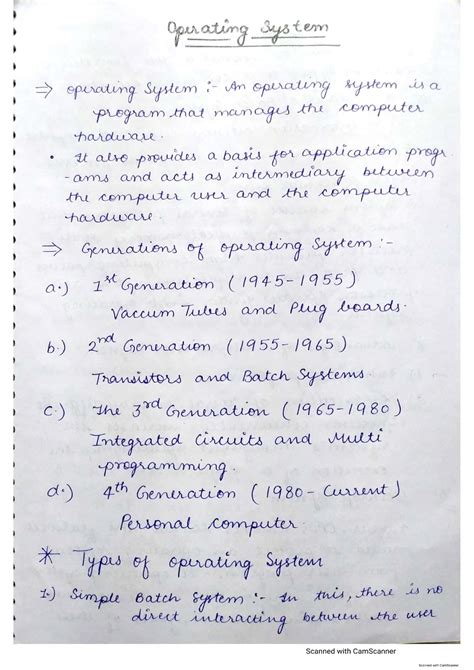 Operating System
⇒ Operating System :- An operating system is a
program that manages the computer
hardware.
• It also provides a basis for application progr
-ams and acts as intermediary between
the computer user and the computer
hardware.
⇒ Generations of operating System :-
a.) 1st Generation (1945-1955)
Vaccum Tubes and Plug boards.
b.) 2nd Generation (1955-1965)
Transistors and Batch Systems
c.) The 3rd Generation (1965-1980)
Integrated Circuits and Multi
programming.
d.) 4th Generation (1980- Current)
Personal Computer
* Types of operating System
1.) Simple Batch System :- In this, there is no
direct interacting between the user
Scanned with CamScanner
Scanned with CamScanner